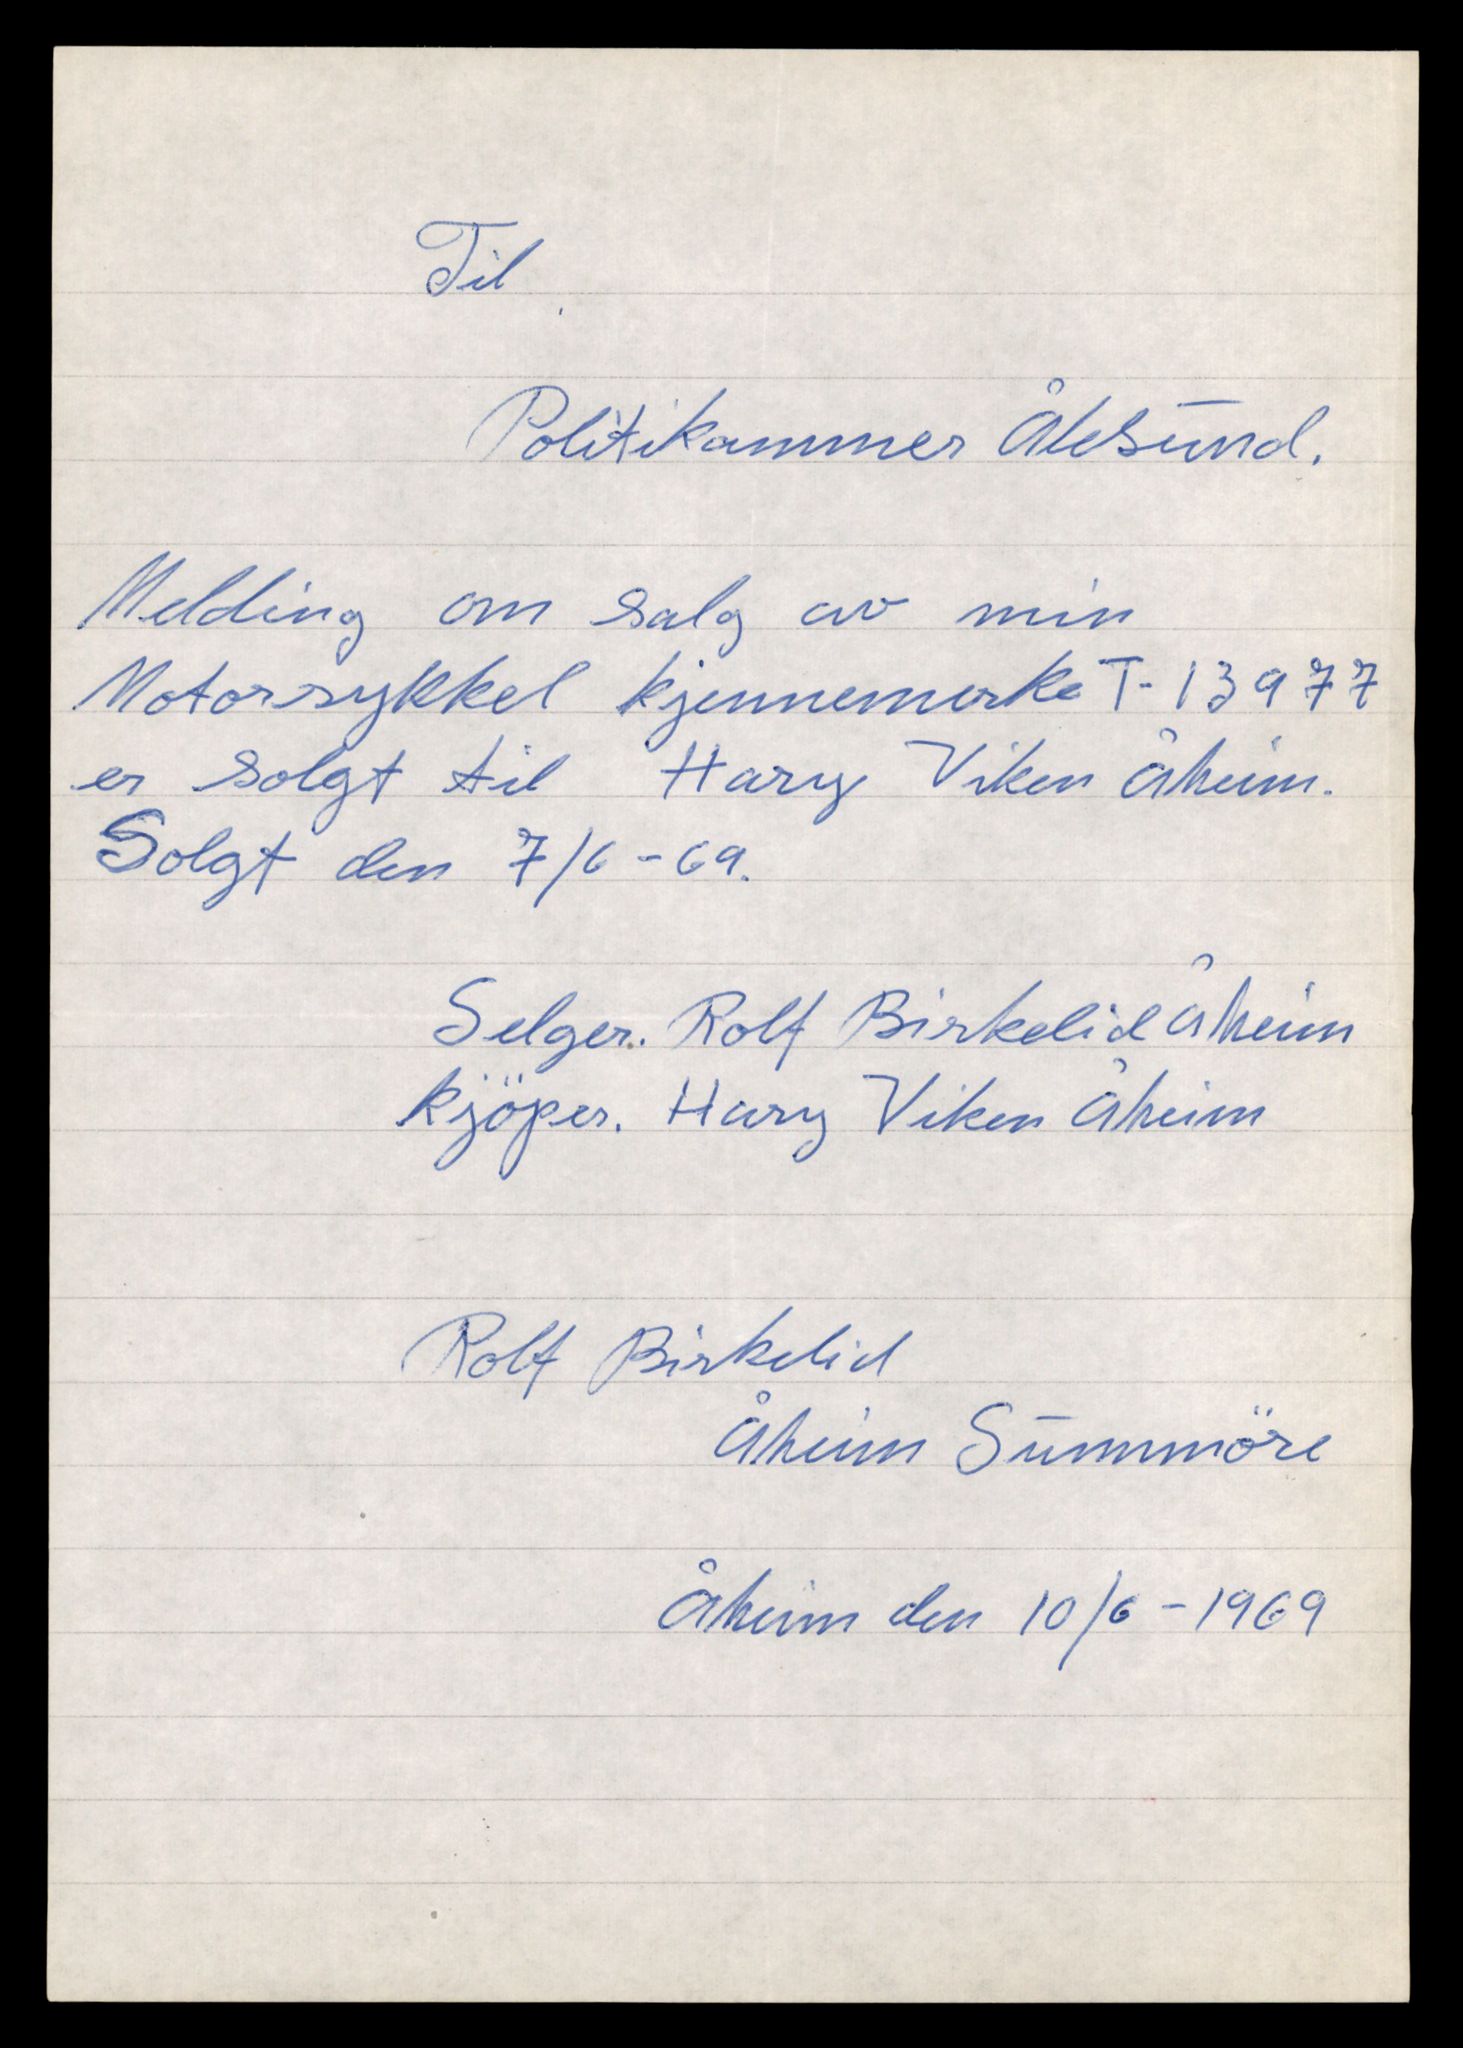 Til
Politikammer Ålesund.
Melding om salg av min
Motorsykkel kjennemerke T-13977
er solgt til Hary Viken Åheim.
Solgt den 7/6-69.
Selger. Rolf Birkelid Åheim
kjöper. Hary Viken Åheim
Rolf Birkelid
Åheim Sunnmöre
Åheim den 10/6-1969